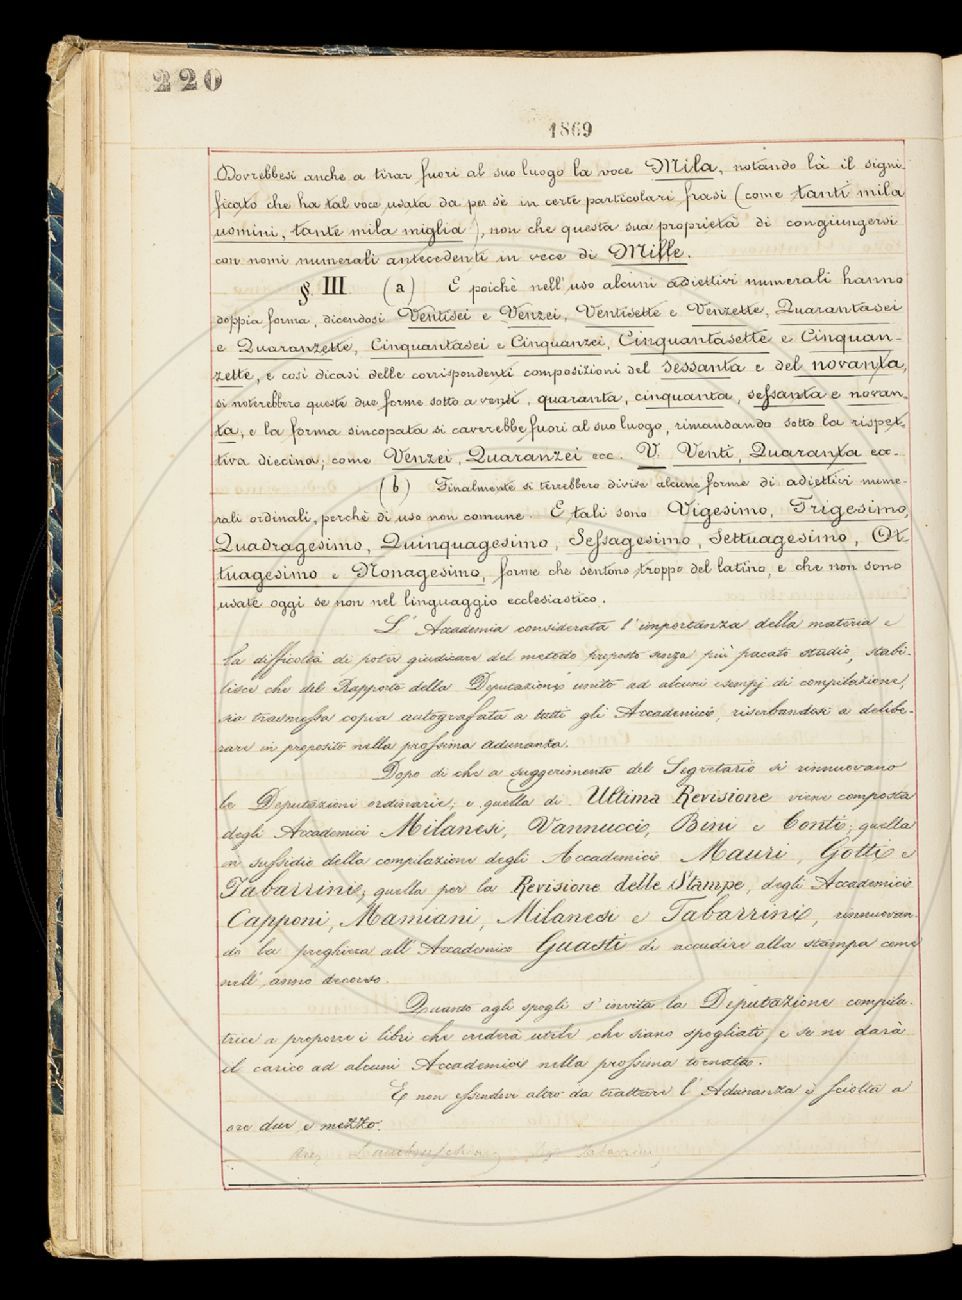 220
1869
Dovrebbesi anche a tirar fuori al suo luogo la voce Mila, notando là il signi-
ficato che ha tal voce usata da per sè in certe particolari frasi (come tanti mila
uomini, tante mila miglia), non che questa sua proprietà di congiungersi
con nomi numerali antecedenti in vece di Mille.
§. III. (a) E poichè nell'uso alcuni adiettivi numerali hanno
doppia forma, dicendosi Ventisei e Venzei, Ventisette e Venzette, Quarantasei
e Quaranzette, Cinquantasei e Cinquanzei, Cinquantasette e Cinquan-
zette, e così dicasi delle corrispondenti composizioni del sessanta e del novanta,
si noterebbero queste due forme sotto a venti, quaranta, cinquanta, sessanta e novan-
ta, e la forma sincopata si caverebbe fuori al suo luogo, rimandando sotto la rispet-
tiva diecina; come Venzei, Quaranzei ecc. V. Venti, Quaranta ecc.
(b) Finalmente si terrebbero divise alcune forme di adiettivi nume-
rali ordinali, perchè di uso non comune. E tali sono Vigesimo, Trigesimo,
Quadragesimo, Quinquagesimo, Sessagesimo, Settuagesimo, Ot-
tuagesimo e Nonagesimo, forme che sentono troppo del latino, e che non sono
usate oggi se non nel linguaggio ecclesiastico.
L'Accademia considerata l'importanza della materia e
la difficoltà di poter giudicare del metodo proposto senza più pacato studio, stabi-
lisce che del Rapporto della Deputazione unito ad alcuni esempj di compilazione,
sia trasmessa copia autografata a tutti gli Accademici, riserbandosi a delibe-
rare in proposito nella prossima adunanza.
Dopo di che a suggerimento del Segretario si rinnuovano
le Deputazioni ordinarie; e quella di Ultima Revisione viene composta
degli Accademici Milanesi, Vannucci, Bini e Conti; quella
in sussidio della compilazione degli Accademici Mauri, Gotti e
Tabarrini; quella per la Revisione delle Stampe, degli Accademici
Capponi, Mamiani, Milanesi e Tabarrini, rinnuovan
do la preghiera all'Accademico Guasti di accudire alla stampa come
nell'anno decorso.
Quanto agli spogli s'invita la Deputazione compila-
trice a proporre i libri che crederà utile che siano spogliati, e se ne darà
il carico ad alcuni Accademici nella prossima tornata.
E non essendovi altro da trattare l'Adunanza è sciolta a
ore due e mezzo.
Lambruschini Tabarrini